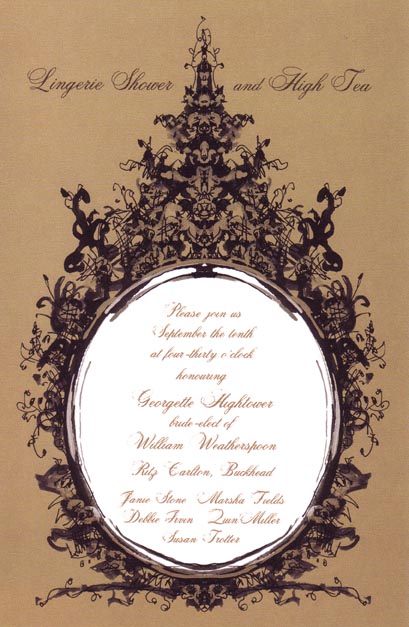 Lingerie Shower and High Tea
Please join us
September the tenth
at four-thirty o'clock
honouring
Georgette Hightower
bride-elect of
William Weatherspoon
Ritz Carlton, Buckhead
Janie Stone Marsha Fields
Debbie Irvin Quin Miller
Susan Trotter